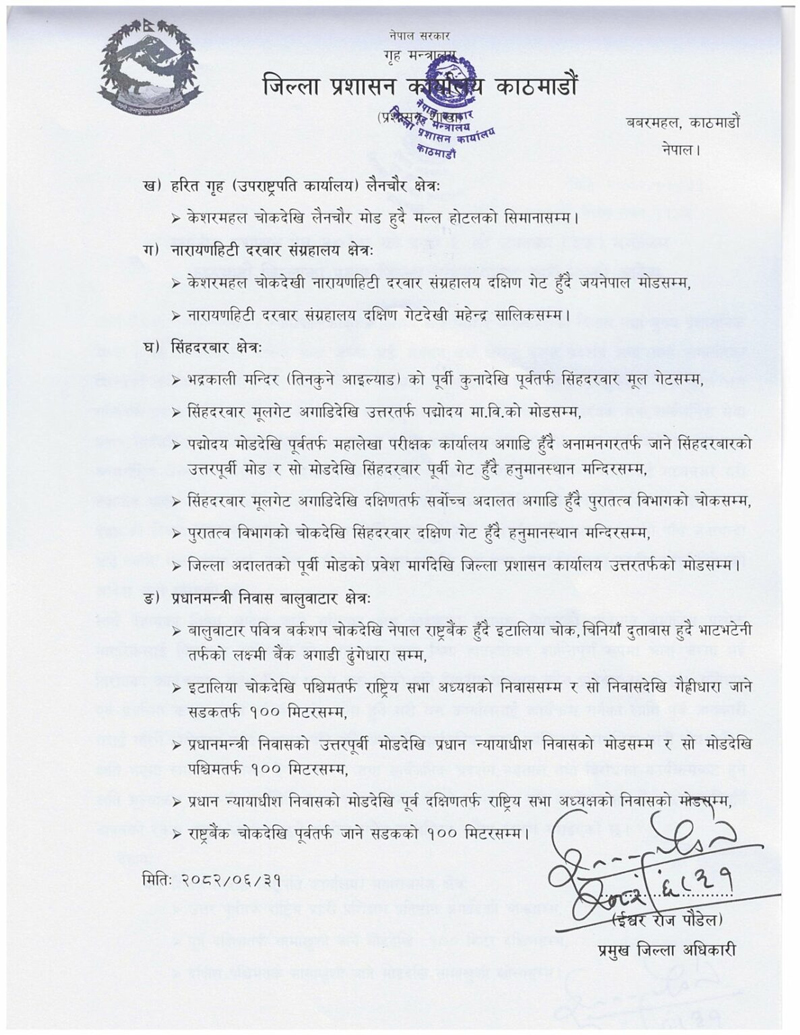 नेपाल सरकार
गृह मन्त्रालय
जिल्ला प्रशासन कार्यालय काठमाडौं
(प्रशासन शाखा)
नेपाल सरकार
गृह मन्त्रालय
जिल्ला प्रशासन कार्यालय
काठमाडौं
बबरमहल, काठमाडौं
नेपाल।
ख) हरित गृह (उपराष्ट्रपति कार्यालय) लैनचौर क्षेत्रः
➢ केशरमहल चोकदेखि लैनचौर मोड हुदै मल्ल होटलको सिमानासम्म।
ग) नारायणहिटी दरवार संग्रहालय क्षेत्रः
➢ केशरमहल चोकदेखी नारायणहिटी दरवार संग्रहालय दक्षिण गेट हुँदै जयनेपाल मोडसम्म,
➢ नारायणहिटी दरवार संग्रहालय दक्षिण गेटदेखी महेन्द्र सालिकसम्म।
घ) सिंहदरबार क्षेत्रः
➢ भद्रकाली मन्दिर (तिनकुने आइल्याड) को पूर्वी कुनादेखि पूर्वतर्फ सिंहदरवार मूल गेटसम्म,
➢ सिंहदरबार मूलगेट अगाडिदेखि उत्तरतर्फ पद्मोदय मा.वि.को मोडसम्म,
➢ पद्मोदय मोडदेखि पूर्वतर्फ महालेखा परीक्षक कार्यालय अगाडि हुँदै अनामनगरतर्फ जाने सिंहदरवारको
उत्तरपूर्वी मोड र सो मोडदेखि सिंहदरवार पूर्वी गेट हुँदै हनुमानस्थान मन्दिरसम्म,
➢ सिंहदरवार मूलगेट अगाडिदेखि दक्षिणतर्फ सर्वोच्च अदालत अगाडि हुँदै पुरातत्व विभागको चोकसम्म,
➢ पुरातत्व विभागको चोकदेखि सिंहदरवार दक्षिण गेट हुँदै हनुमानस्थान मन्दिरसम्म,
➢ जिल्ला अदालतको पूर्वी मोडको प्रवेश मार्गदेखि जिल्ला प्रशासन कार्यालय उत्तरतर्फको मोडसम्म।
ङ) प्रधानमन्त्री निवास बालुवाटार क्षेत्रः
➢ बालुवाटार पवित्र बर्कशप चोकदेखि नेपाल राष्ट्रबैंक हुँदै इटालिया चोक,चिनियाँ दुतावास हुदै भाटभटेनी
तर्फको लक्ष्मी बैंक अगाडी ढुंगेधारा सम्म,
➢ इटालिया चोकदेखि पश्चिमतर्फ राष्ट्रिय सभा अध्यक्षको निवाससम्म र सो निवासदेखि गैह्रीधारा जाने
सडकतर्फ १०० मिटरसम्म,
➢ प्रधानमन्त्री निवासको उत्तरपूर्वी मोडदेखि प्रधान न्यायाधीश निवासको मोडसम्म र सो मोडदेखि
पश्चिमतर्फ १०० मिटरसम्म,
➢ प्रधान न्यायाधीश निवासको मोडदेखि पूर्व दक्षिणतर्फ राष्ट्रिय सभा अध्यक्षको निवासको मोडसम्म,
➢ राष्ट्रबैंक चोकदेखि पूर्वतर्फ जाने सडकको १०० मिटरसम्म।
मितिः २०८२/०६/३१
२०८२।६।३१
(ईश्वर राज पौडेल)
प्रमुख जिल्ला अधिकारी